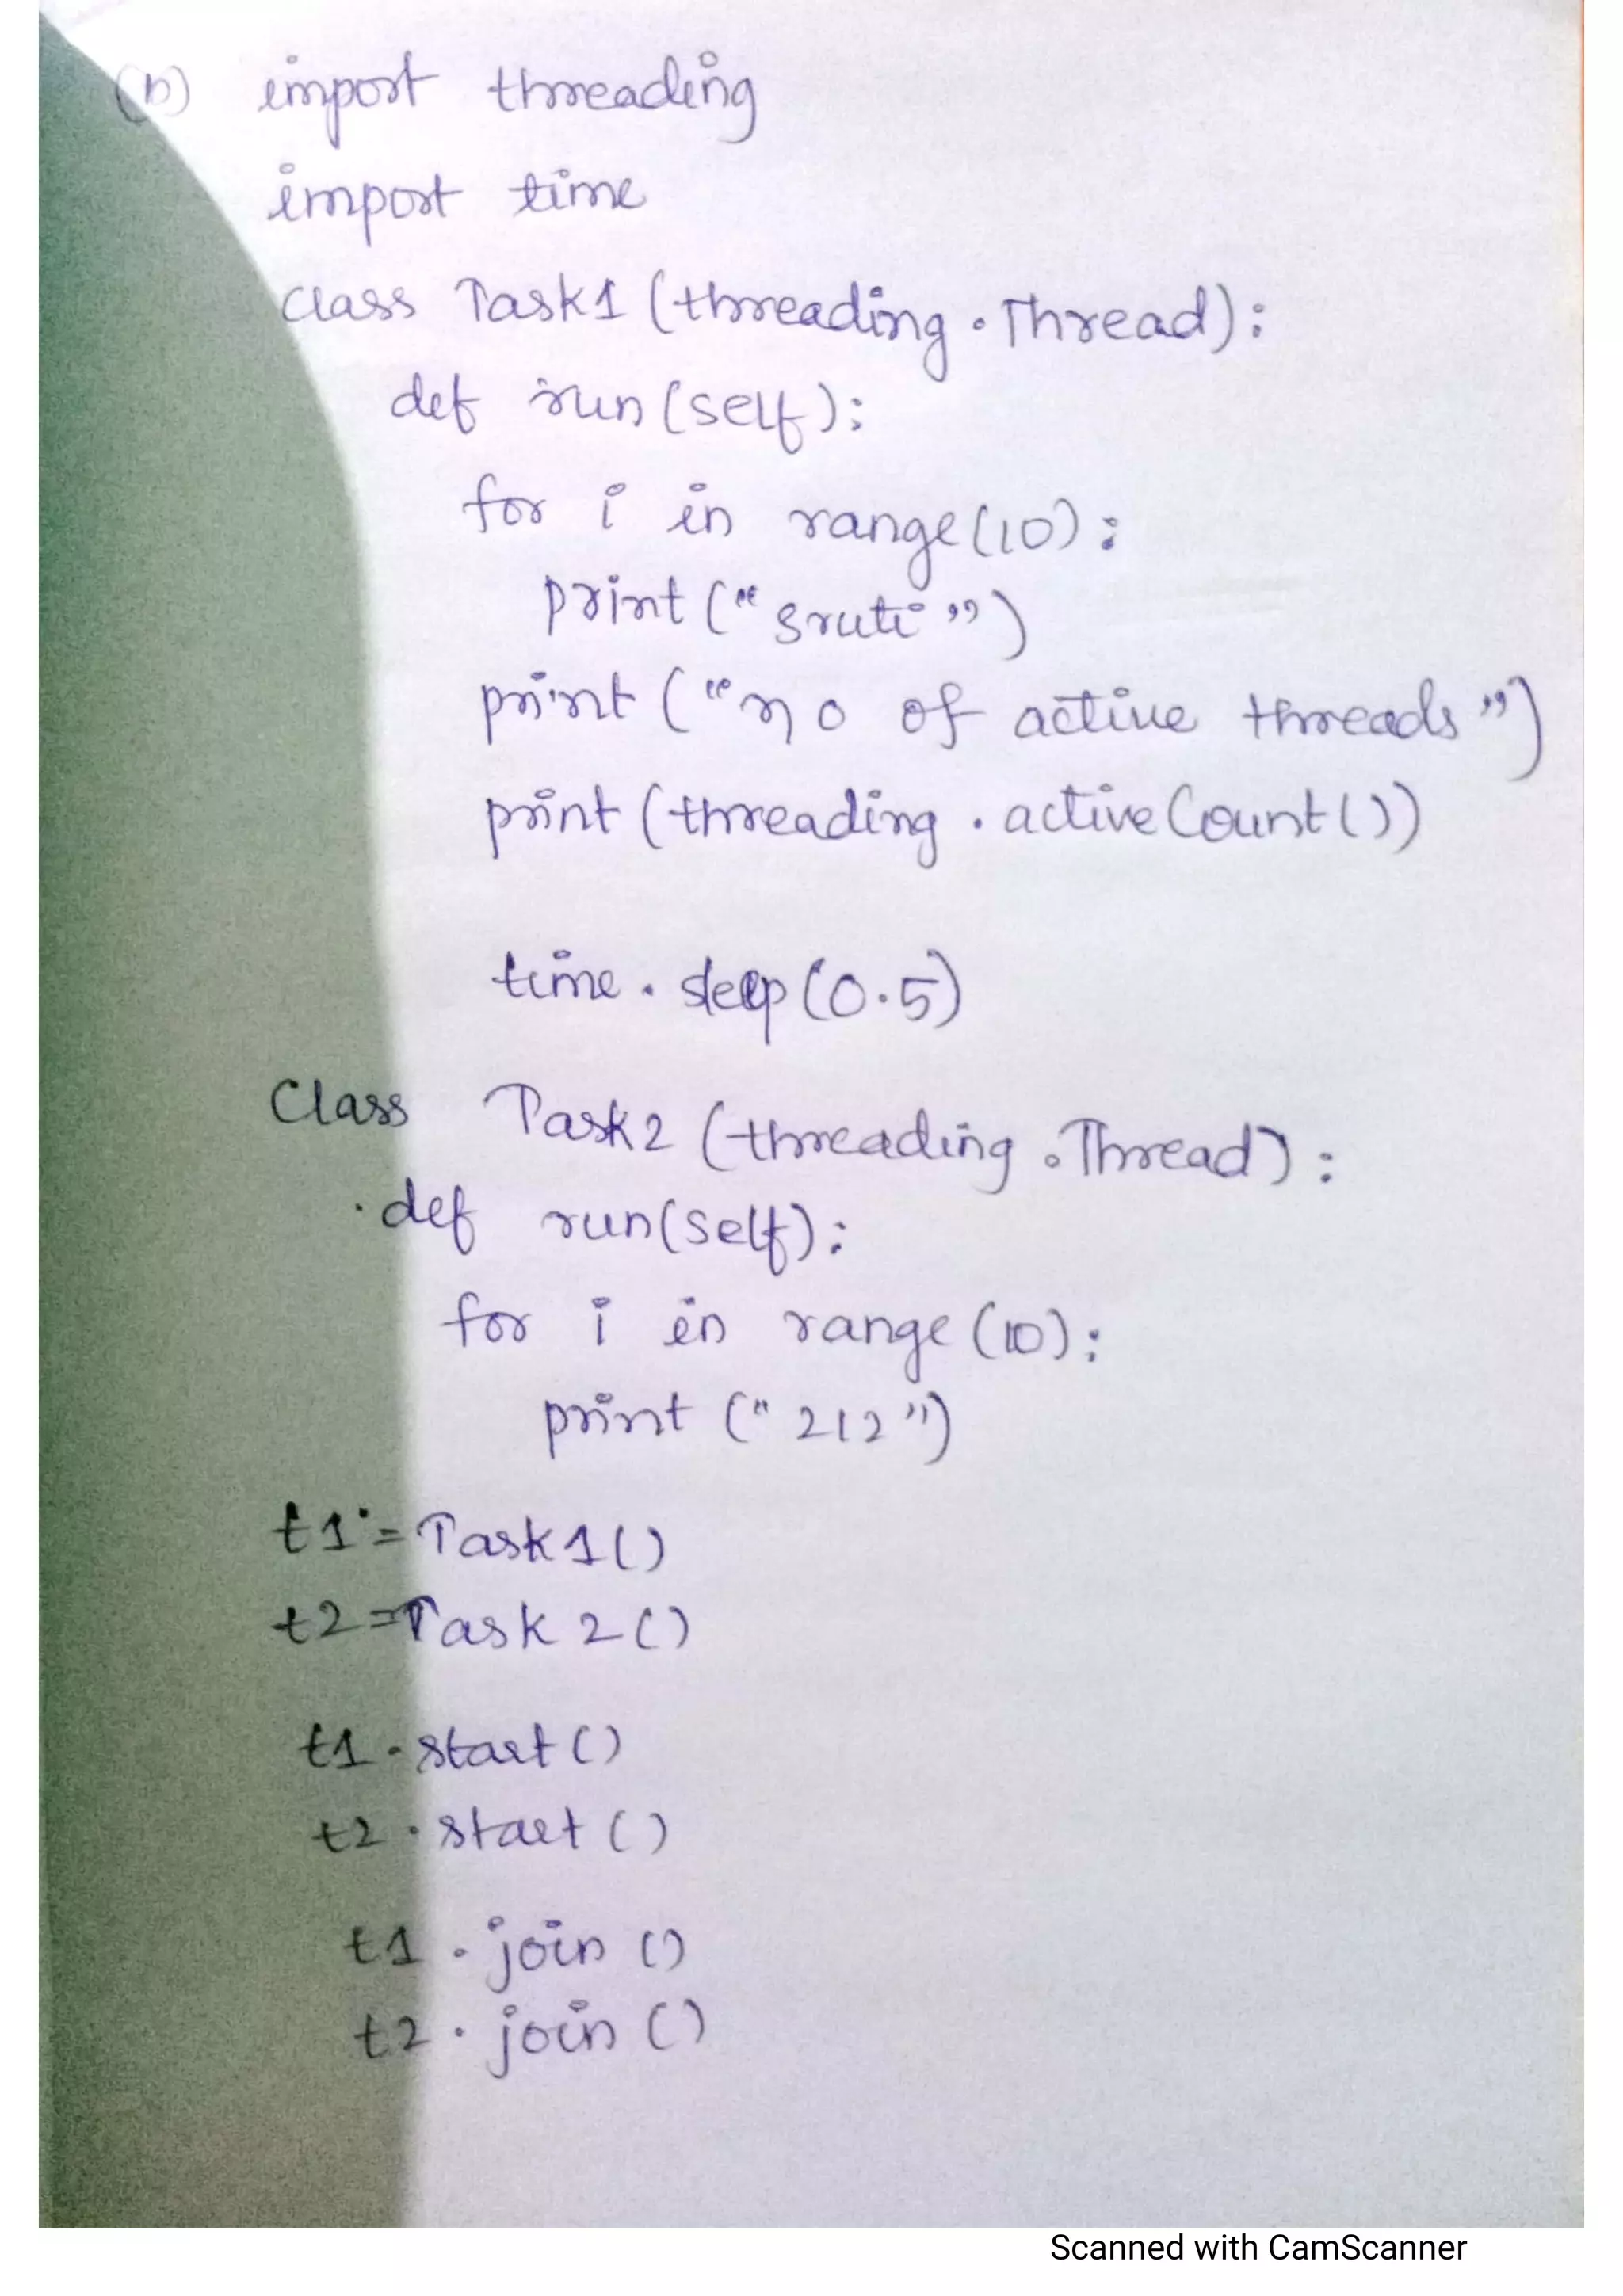 (b) import threading
import time
class Task1 (threading.Thread):
def run(self):
for i in range(10):
print("Sruti")
print("no of active threads")
print(threading.activeCount())
time.sleep(0.5)
Class Task2 (threading.Thread):
def run(self):
for i in range(10):
print("212")
t1=Task1()
t2=Task2()
t1.start()
t2.start()
t1.join()
t2.join()
Scanned with CamScanner